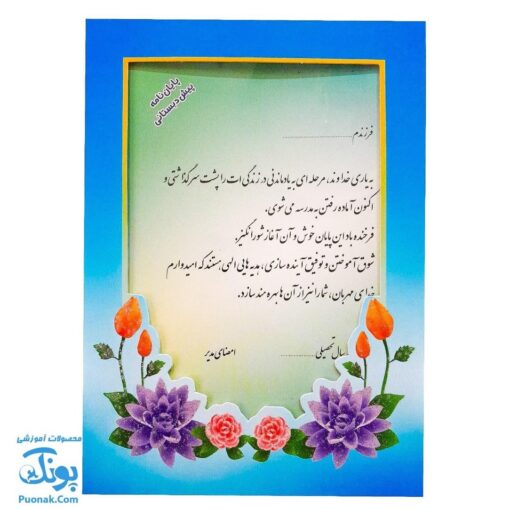 پایان‌نامه
پیش‌دبستانی
فرزندم ........................
به یاری خداوند، مرحله‌ای به یادماندنی در زندگی ات را پشت سر گذاشتی و
اکنون آماده رفتن به مدرسه می شوی.
فرخنده باد این پایان خوش و آن آغاز شورانگیز.
شوق آموختن و توفیق آینده سازی، هدیه هایی الهی هستند که امیدوارم
خدای مهربان، شما را نیز از آن ها بهره مند سازد.
سال تحصیلی ............ امضای مدیر
محصولات آموزشی
پونک
Puonak.Com